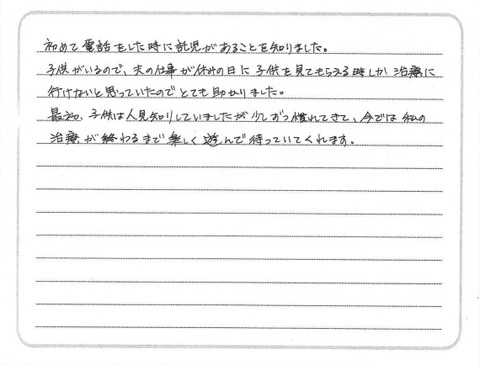 初めて電話をした時に託児があることを知りました。
子供がいるので、夫の仕事が休みの日に子供を見てもらえる時しか治療に
行けないと思っていたのでとても助かりました。
最初、子供は人見知りしていましたが少しずつ慣れてきて、今では私の
治療が終わるまで楽しく遊んで待っていてくれます。